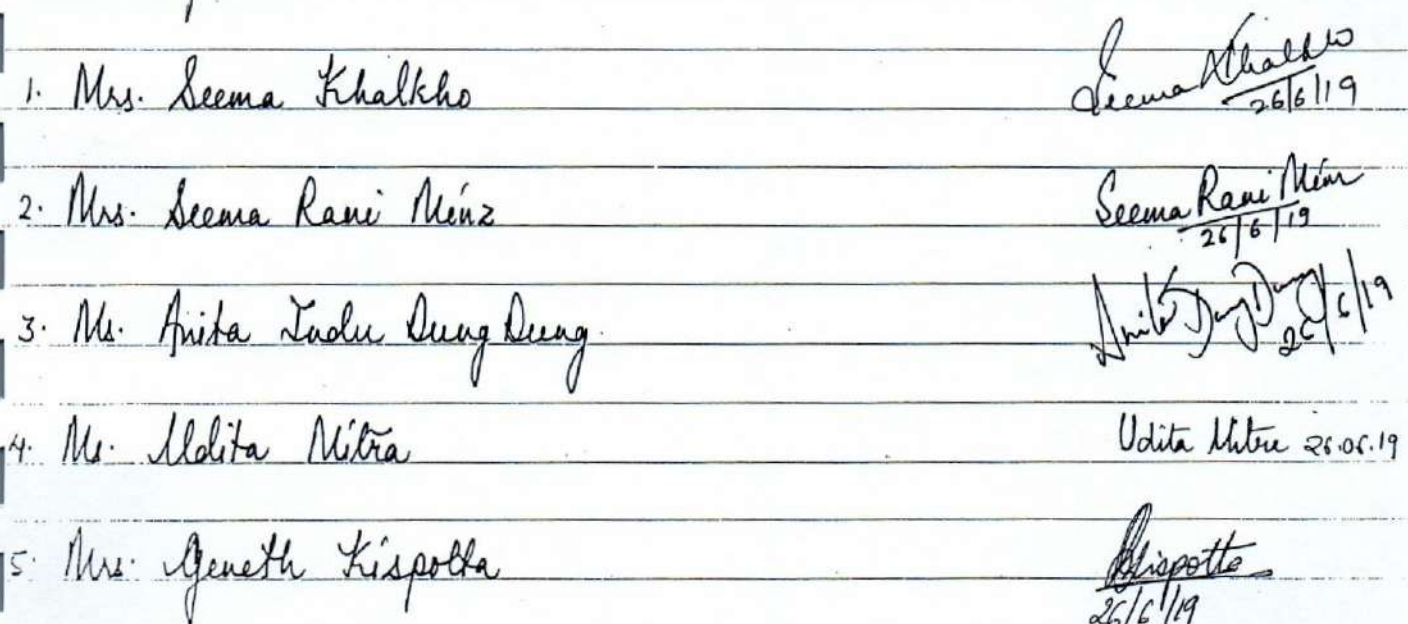 1. Mrs. Seema Khalkho Seema Khalkho
26/6/19
2. Mrs. Seema Rani Minz Seema Rani Minz
26/6/19
3. Ms. Anita Indu Dung Dung. Anita Dung Dung 26/6/19
4. Ms. Udita Mitra Udita Mitra 26.06.19
5. Mrs. Geneth Kispotta Kispotta
26/6/19